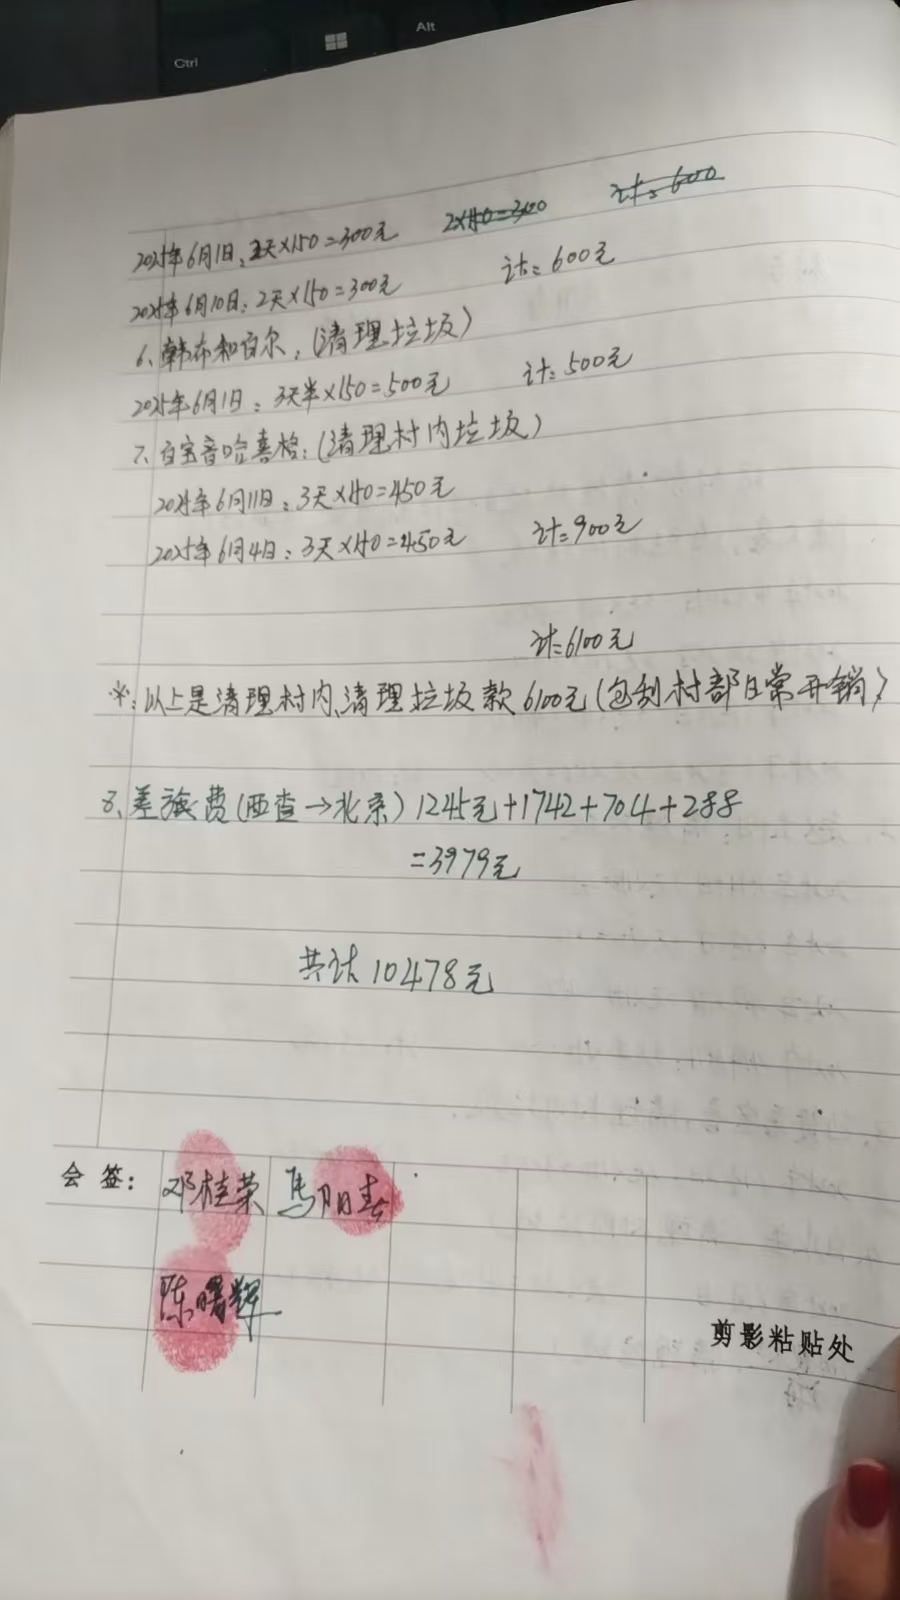 Ctrl
Alt
2025年6月1日：2天×150=300元 2×150=300 计：600
2025年6月10日：2天×150=300元 计：600元
6、韩布和白尔：（清理垃圾）
2025年6月1日：3天半×150=500元 计：500元
7、白宝音哈喜格：（清理村内垃圾）
2025年6月11日：3天×150=450元
2025年6月4日：3天×150=450元 计=900元
计=6100元
*：以上是清理村内、清理垃圾款6100元（包刮村部日常开销）
8、差旅费（西查→北京）1245元+1742+704+288
=3979元
共计10478元
会 签： 邓桂荣 马月春
陈曙辉
剪影粘贴处